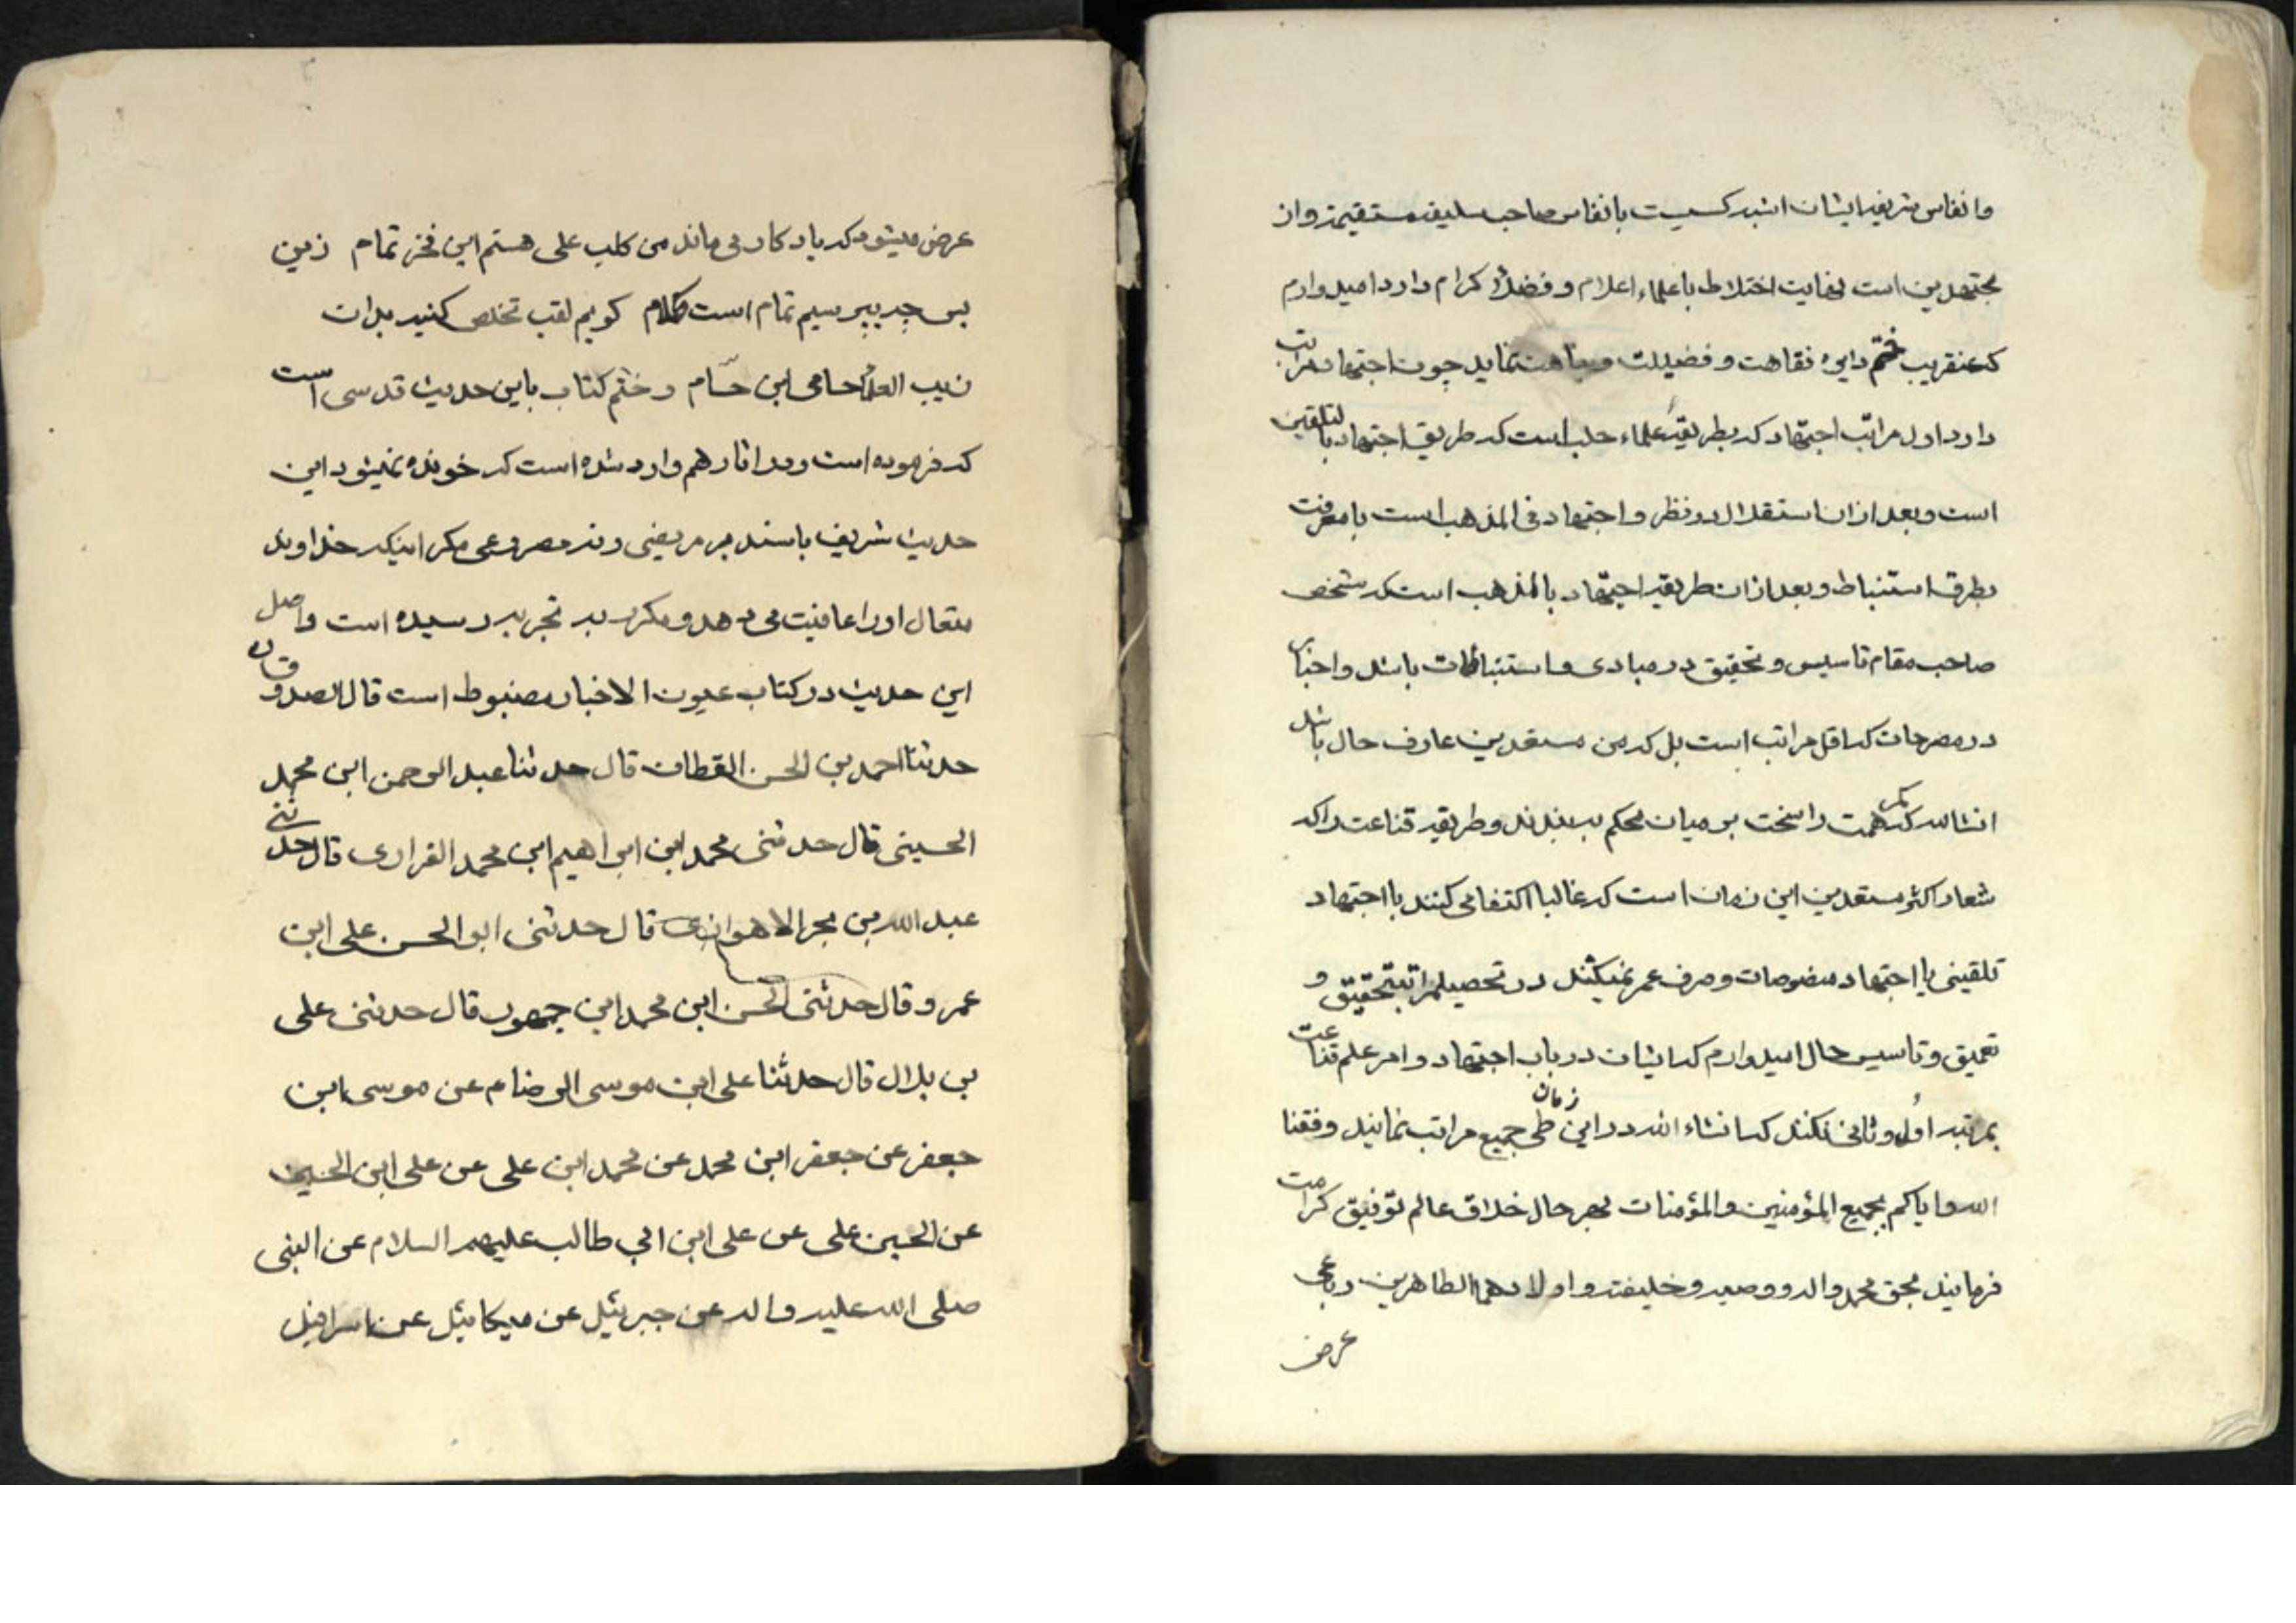 وانفاس شریفه ایشان اشبه کسیست بانفاس صاحب سلیقه مستقیمه واز
مجتهدین است بغایت اختلاط با علماء اعلام و فضلاء کرام دارد امیدوارم
که عنقریب ختم دایره فقاهت و فضیلت و نماید چون اجتهاد مراتب
دارد اول مراتب اجتهاد که بطریقهٔ علماء حلب است که طریق اجتهاد بالتلقین
است وبعد ازان استقلال در نظر و اجتهاد فی المذهب است با معرفت
بطرق استنباط و بعد ازان طریقه اجتهاد بالمذهب است که شخص
صاحب مقام تاسیس و تحقیق در مبادی و استنباطات باشد واحبای
در مصرحات که اقل مراتب است بل که من مستعدین عارف حال باشد
انشاالله کمر همت را سخت بر میان محکم به بندند وطریقه قناعت را که
شعار اکثر مستعدین این زمان است که غالبا اکتفا می کنند با اجتهاد
تلقینی یا اجتهاد منصوصات و صرف عمر نمیکنند در تحصیل مراتب تحقیق و
تعمیق و تاسیس حال امیدوارم که ایشان در باب اجتهاد و امر علم قناعت
بمرتبه اول و ثانی نکنند که انشاء الله در این زمان طی جمیع مراتب نمایند وفقنا
الله وایاکم بجمیع المؤمنین والمؤمنات بهر حال خلاق عالم توفیق کرامت
فرمایند بحق محمد واله و وصیه وخلیفته واولادهما الطاهرین رباعی
عرض
عرض میشود که یادکار می ماند من کلب علی هستم این فخر تمام زین
پس چه بپرسیم تمام است کلام کویم لقب تخلص کنید بدان
زیب العلماء حامی ابن حسّام و ختم کتاب باین حدیث قدسی است
که فرموده است ودر اثار هم وارد شده است که خونده نمیشود این
حدیث شریف باسند بر مریضی ونه مصروعی مکر اینکه خداوند
متعال اورا عافیت می دهد و مکرر به تجربه رسیده است واصل
این حدیث در کتاب عیون الاخبار مضبوط است قال الصدوق ره
حدثنا احمد بن الحسن القطان قال حدثنا عبد الرحمن ابن محمد
الحسینی قال حدثنی محمد ابن ابراهیم ابن محمد الفزاری قال حدثنی
عبد الله بن بحر الاهوازی قال حدثنی ابو الحسن علی ابن
عمرو قال حدثنی الحسن ابن محمد ابن جمهور قال حدثنی علی
بن بلال قال حدثنا علی ابن موسی الرضا ع م عن موسی ابن
جعفر عن جعفر ابن محمد عن محمد ابن علی عن علی ابن الحسین
عن الحسین علی عن علی ابن ابی طالب علیهم السلام عن النبی
صلی الله علیه واله عن جبرئیل عن میکائیل عن اسرافیل